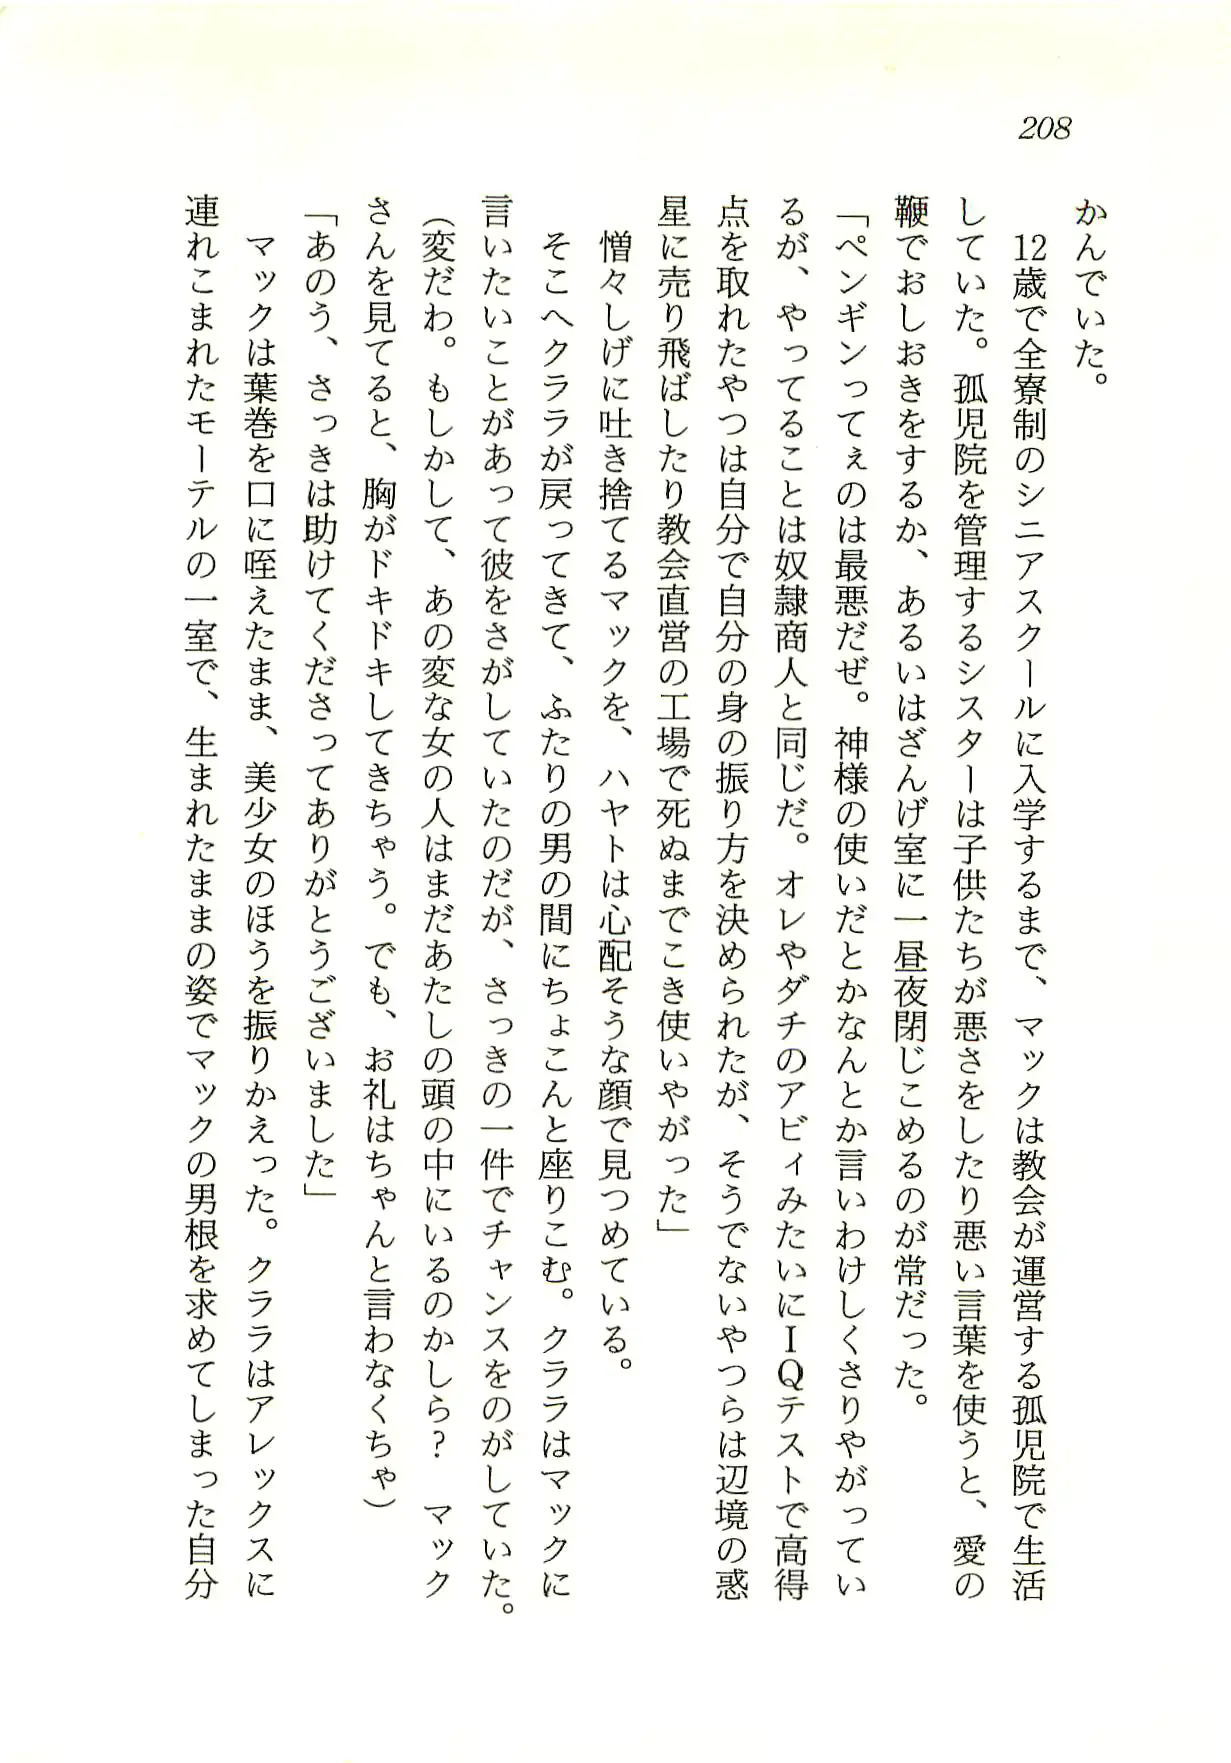 208
かんでいた。
　12歳で全寮制のシニアスクールに入学するまで、マックは教会が運営する孤児院で生活
していた。孤児院を管理するシスターは子供たちが悪さをしたり悪い言葉を使うと、愛の
鞭でおしおきをするか、あるいはざんげ室に一昼夜閉じこめるのが常だった。
「ペンギンってぇのは最悪だぜ。神様の使いだとかなんとか言いわけしくさりやがってい
るが、やってることは奴隷商人と同じだ。オレやダチのアビィみたいにIQテストで高得
点を取れたやつは自分で自分の身の振り方を決められたが、そうでないやつらは辺境の惑
星に売り飛ばしたり教会直営の工場で死ぬまでこき使いやがった」
　憎々しげに吐き捨てるマックを、ハヤトは心配そうな顔で見つめている。
　そこへクララが戻ってきて、ふたりの男の間にちょこんと座りこむ。クララはマックに
言いたいことがあって彼をさがしていたのだが、さっきの一件でチャンスをのがしていた。
（変だわ。もしかして、あの変な女の人はまだあたしの頭の中にいるのかしら？　マック
さんを見てると、胸がドキドキしてきちゃう。でも、お礼はちゃんと言わなくちゃ）
「あのう、さっきは助けてくださってありがとうございました」
　マックは葉巻を口に咥えたまま、美少女のほうを振りかえった。クララはアレックスに
連れこまれたモーテルの一室で、生まれたままの姿でマックの男根を求めてしまった自分